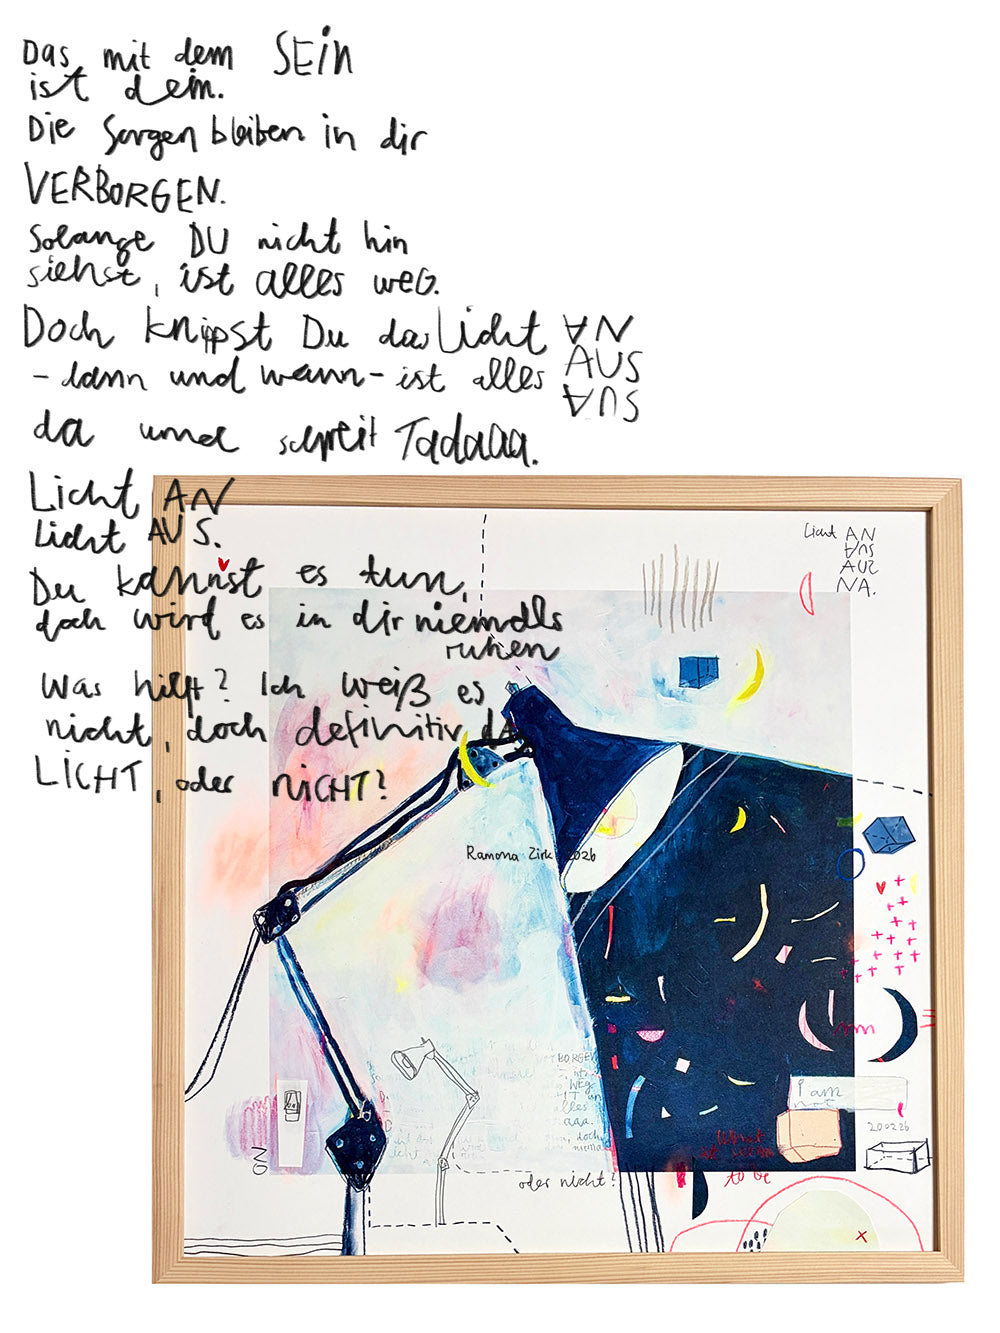 Das mit dem SEIN
ist dein.
Die Sorgen bleiben in dir
VERBORGEN.
Solange DU nicht hin
siehst, ist alles weG.
Doch knippst Du das Licht AN
AUS
AUS
- dann und wann - ist alles
da und schreit Tadaaa.
Licht AN
Licht AUS.
Du kannst es tun,
doch wird es in dir niemals
ruhen
Was hilft? Ich weiß es
nicht, doch definitiv dA
LICHT, oder NICHT?
Licht AN
AUS
AUS
NA.
Ramona Zirk 2026
BORGEN
WEG
alles
aaa.
doch
niema
I am
not
200226
oder nicht?
to be
NO